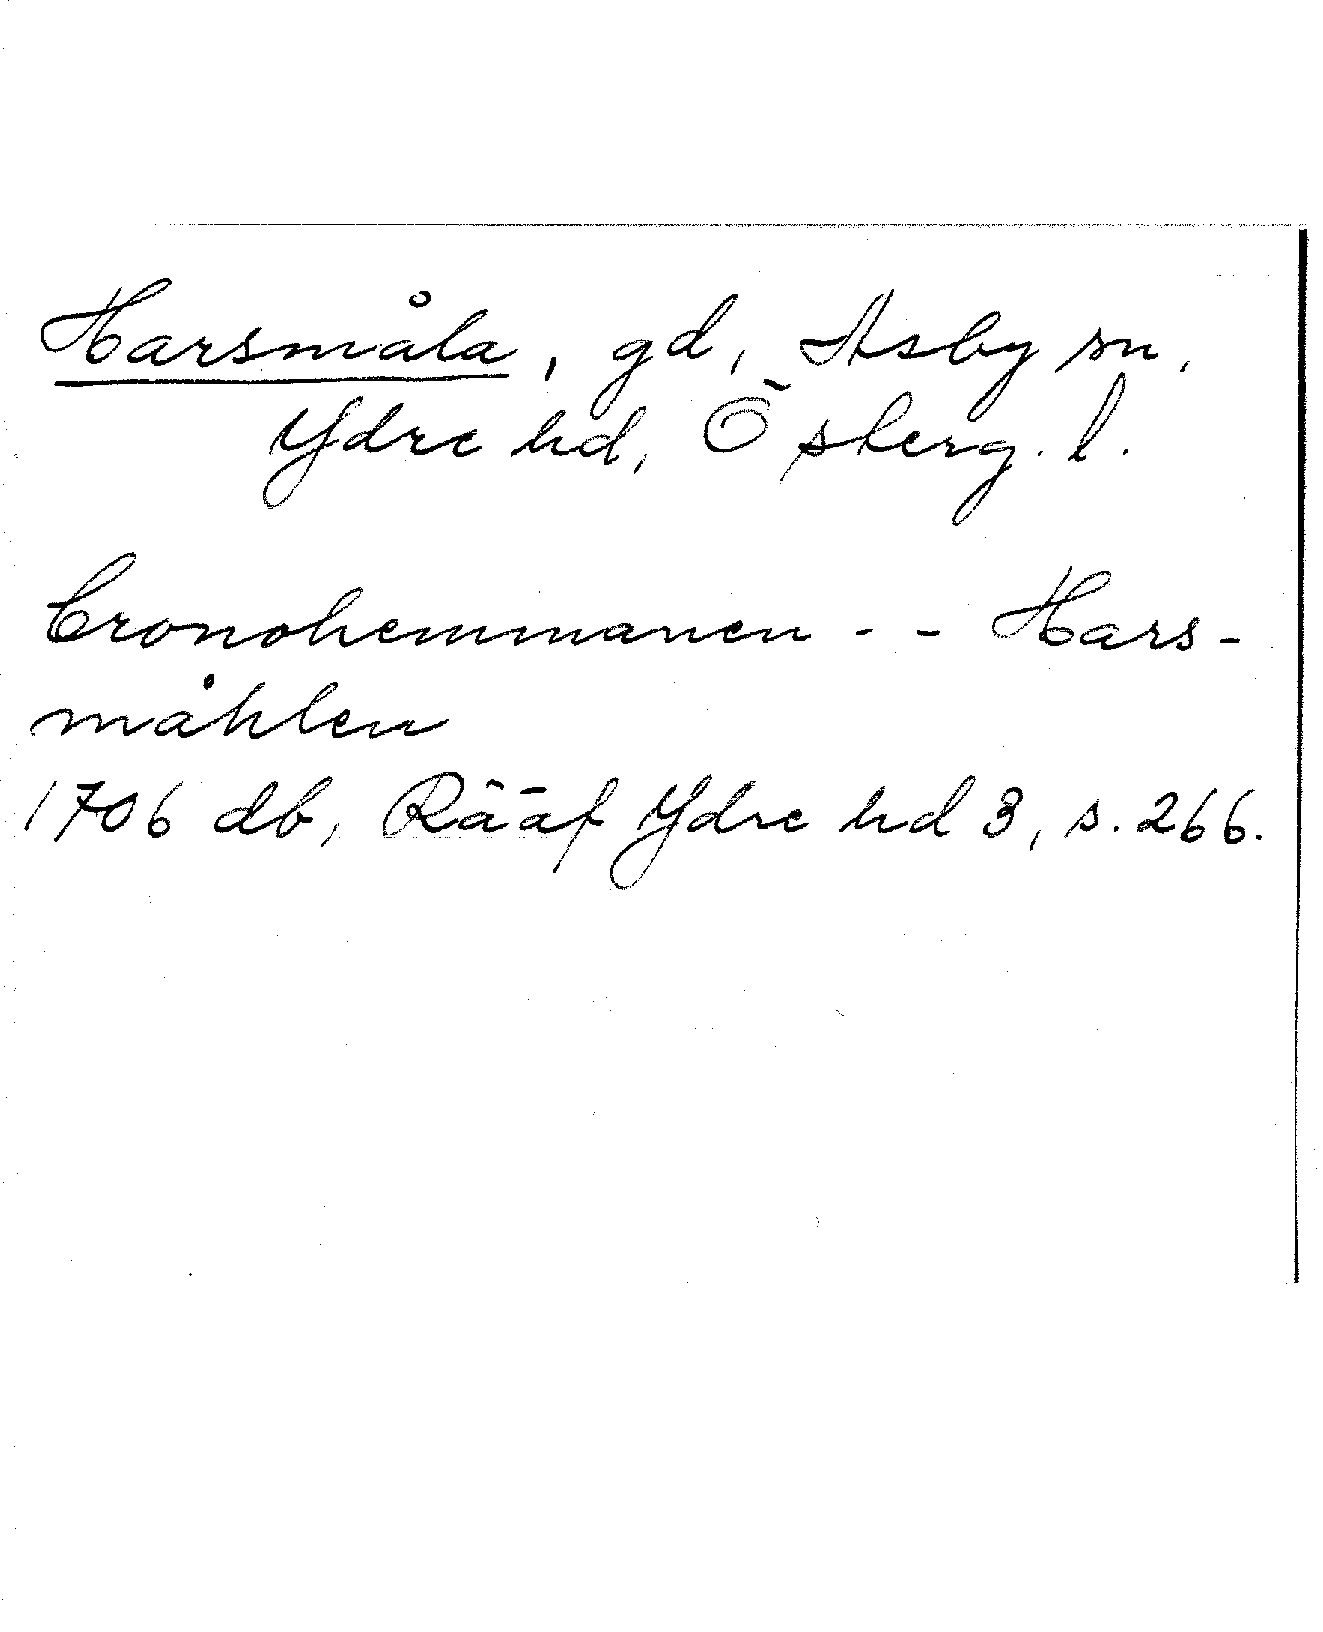 Harsmåla, gd, Asby sn,
Ydre hd, Österg. l.
Cronohemmanen - - Hars-
måhlen
1706 db, Rääf Ydre hd 3, s. 266.